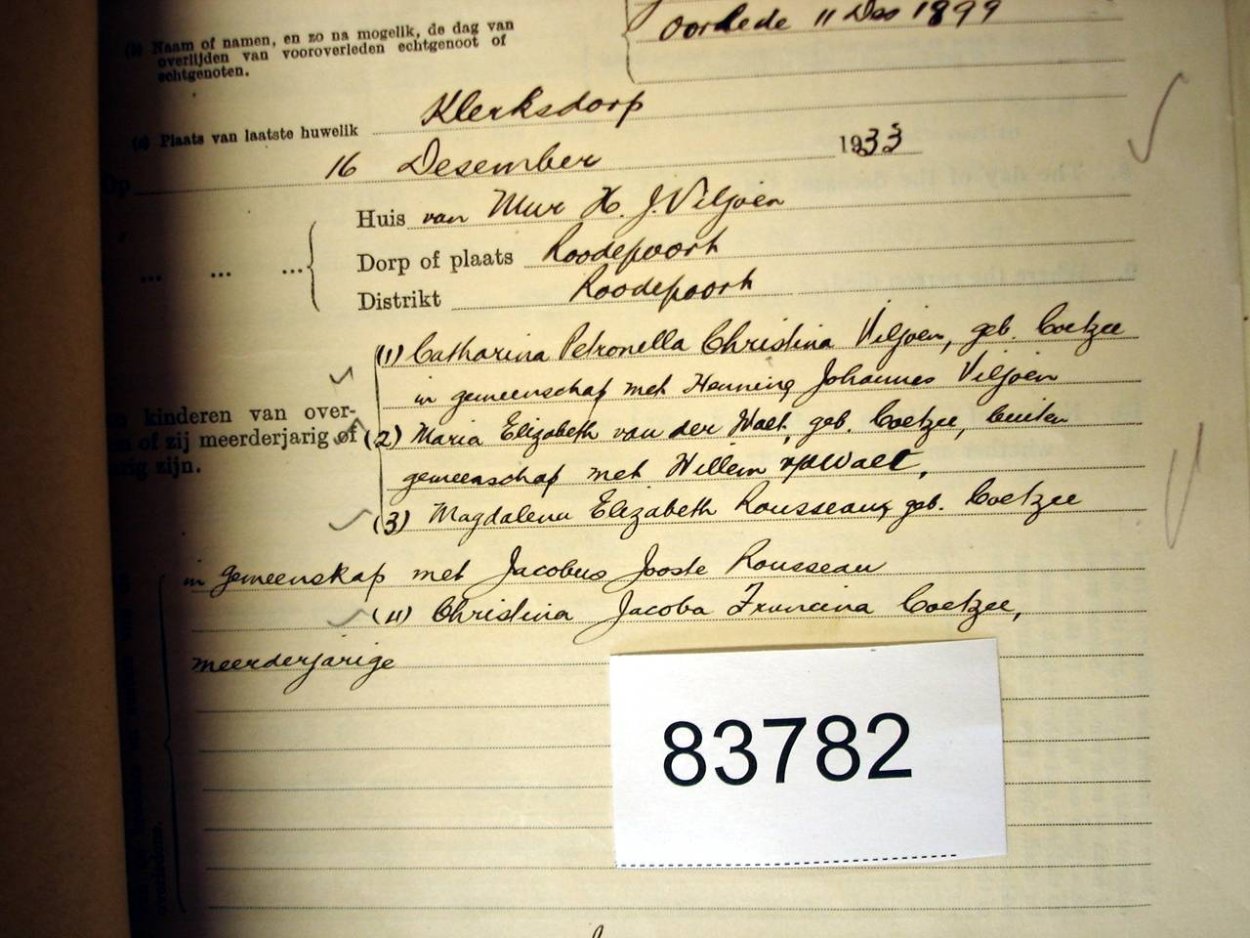 oorlede 11 Des 1899
Naam of namen, en zo na mogelik, de dag van
overlijden van vooroverleden echtgenoot of
echtgenoten.
Plaats van laatste huwelik Klerksdorp
Op 16 Desember 1933
Huis van Mnr H. J. Viljoen
... ... ... Dorp of plaats Roodepoort
Distrikt Roodepoort
(1) Catharina Petronella Christina Viljoen, geb. Coetzee
in gemeenschap met Henning Johannes Viljoen
kinderen van over-
of zij meerderjarig of (2) Maria Elizabeth van der Walt, geb. Coetzee, buiten
zijn. gemeenschap met Willem v/d Walt,
(3) Magdalena Elizabeth Rousseau, geb. Coetzee
in gemeenskap met Jacobus Jooste Rousseau
(4) Christina Jacoba Francina Coetzee,
meerderjarige
83782